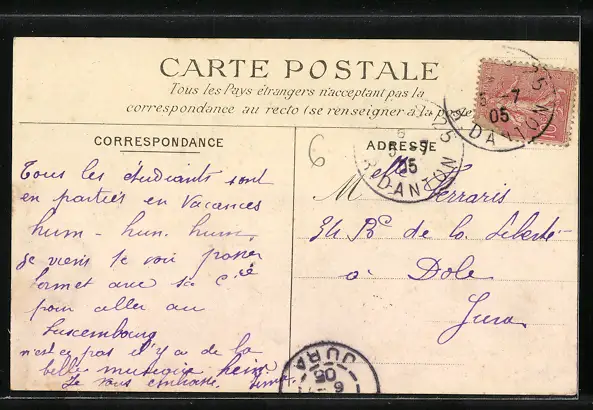 CARTE POSTALE
Tous les Pays étrangers n'acceptent pas la
correspondance au recto (se renseigner à la poste)
CORRESPONDANCE
ADRESSE
Tous les étudiants sont
en parties en vacances
hum - hum. hum
je viens te voir passer
Permet avec sa Cie
pour aller au
Luxembourg
n'est ce pas il y a de la
belle musique hein
Je vous embrasse
Melle Ferraris
34 Bd de la Liberté
à Dole
Jura
R. DANTON
5 -7
05
R. DANTON
05
JURA
05
6